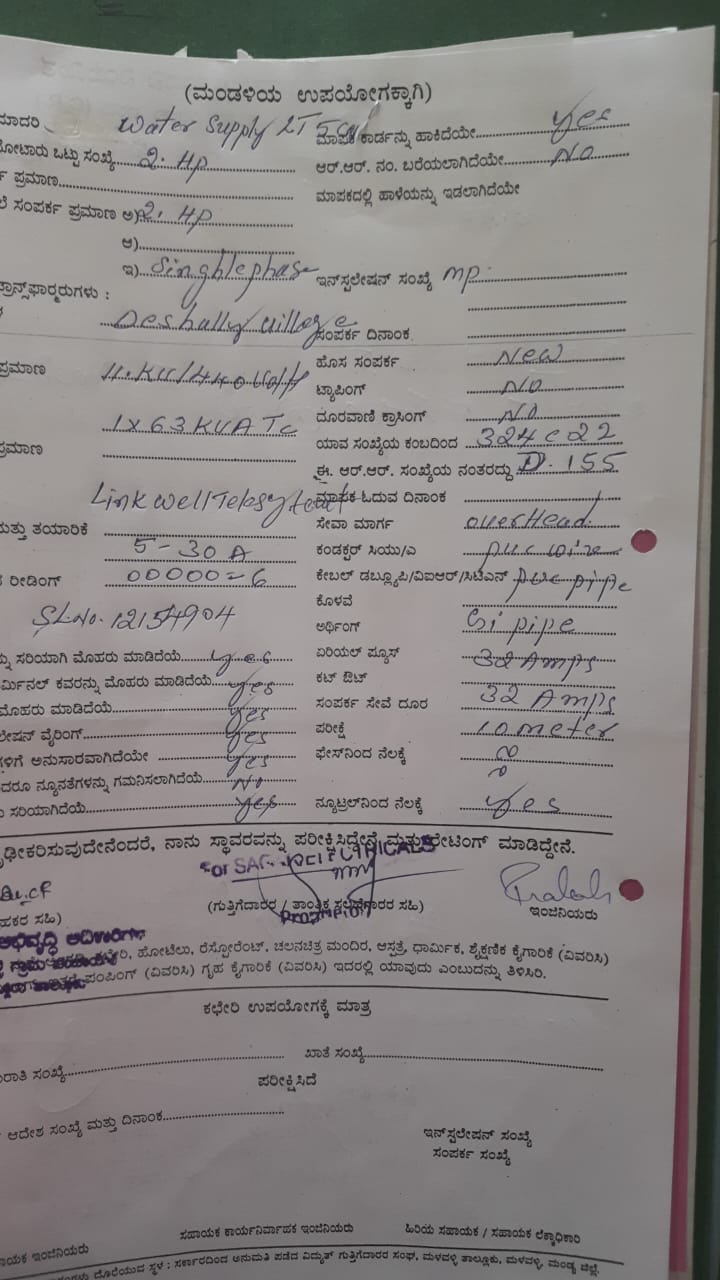 (ಮಂಡಳಿಯ ಉಪಯೋಗಕ್ಕಾಗಿ)
ಮಾದರಿ Water Supply LT
ಮಾಪಕ ಕಾರ್ಡನ್ನು ಹಾಕಿದೆಯೇ Yes
ಮೋಟಾರು ಒಟ್ಟು ಸಂಖ್ಯೆ 2. HP
ಆರ್.ಆರ್. ನಂ. ಬರೆಯಲಾಗಿದೆಯೇ No
ಪ್ರಮಾಣ
ಮಾಪಕದಲ್ಲಿ ಹಾಳೆಯನ್ನು ಇಡಲಾಗಿದೆಯೇ
ಸಂಪರ್ಕ ಪ್ರಮಾಣ ಅ) 2. HP
ಆ)
ಇ) Singhlephase
ಇನ್‌ಸ್ಟಲೇಷನ್ ಸಂಖ್ಯೆ MP
ಟ್ರಾನ್ಸ್‌ಫಾರ್ಮರುಗಳು :
Deshally village
ಸಂಪರ್ಕ ದಿನಾಂಕ
ಪ್ರಮಾಣ 11.KV/440 Volt
ಹೊಸ ಸಂಪರ್ಕ New
ಟ್ಯಾಪಿಂಗ್ NO
1x63KVA Tc
ದೂರವಾಣಿ ಕ್ರಾಸಿಂಗ್ NO
ಪ್ರಮಾಣ
ಯಾವ ಸಂಖ್ಯೆಯ ಕಂಬದಿಂದ 324c22
ಈ. ಆರ್.ಆರ್. ಸಂಖ್ಯೆಯ ನಂತರದ್ದು D. 155
Linkwell
ಮಾಪಕ ಓದುವ ದಿನಾಂಕ
ಮತ್ತು ತಯಾರಿಕೆ
ಸೇವಾ ಮಾರ್ಗ overHead
5-30A
ಕಂಡಕ್ಟರ್ ಸಿಯು/ಎ puc wire
ರೀಡಿಂಗ್ 00000=6
ಕೇಬಲ್ ಡಬ್ಲ್ಯೂಪಿ/ವಿಐಆರ್/ಸಿಟಿಎನ್ puc pipe
ಕೊಳವೆ
SL.No. 12154904
ಅರ್ಥಿಂಗ್ Gi pipe
ಸರಿಯಾಗಿ ಮೊಹರು ಮಾಡಿದೆಯೆ yes
ಏರಿಯಲ್ ಫ್ಯೂಸ್ 32 Amps
ಟರ್ಮಿನಲ್ ಕವರನ್ನು ಮೊಹರು ಮಾಡಿದೆಯೆ yes
ಕಟ್ ಔಟ್
ಮೊಹರು ಮಾಡಿದೆಯೆ yes
ಸಂಪರ್ಕ ಸೇವೆ ದೂರ 32 Amps
ವೈರಿಂಗ್ yes
ಪರೀಕ್ಷೆ 10 meter
ಅನುಸಾರವಾಗಿದೆಯೇ yes
ಫೇಸ್‌ನಿಂದ ನೆಲಕ್ಕೆ
ನ್ಯೂನತೆಗಳನ್ನು ಗಮನಿಸಲಾಗಿದೆಯೆ No
ಸರಿಯಾಗಿದೆಯೆ yes
ನ್ಯೂಟ್ರಲ್‌ನಿಂದ ನೆಲಕ್ಕೆ yes
ದೃಢೀಕರಿಸುವುದೇನೆಂದರೆ, ನಾನು ಸ್ಥಾವರವನ್ನು ಪರೀಕ್ಷಿಸಿದ್ದೇನೆ ಮತ್ತು ರೇಟಿಂಗ್ ಮಾಡಿದ್ದೇನೆ.
For
(ಗುತ್ತಿಗೆದಾರರ / ತಾಂತ್ರಿಕ ಸಲಹೆಗಾರರ ಸಹಿ)
ಇಂಜಿನಿಯರು
ಗ್ರಾಹಕರ ಸಹಿ)
ಹೋಟೆಲು, ರೆಸ್ಟೋರೆಂಟ್, ಚಲನಚಿತ್ರ ಮಂದಿರ, ಆಸ್ಪತ್ರೆ, ಧಾರ್ಮಿಕ, ಶೈಕ್ಷಣಿಕ ಕೈಗಾರಿಕೆ (ವಿವರಿಸಿ)
ಪಂಪಿಂಗ್ (ವಿವರಿಸಿ) ಗೃಹ ಕೈಗಾರಿಕೆ (ವಿವರಿಸಿ) ಇದರಲ್ಲಿ ಯಾವುದು ಎಂಬುದನ್ನು ತಿಳಿಸಿರಿ.
ಕಛೇರಿ ಉಪಯೋಗಕ್ಕೆ ಮಾತ್ರ
ಸಂಖ್ಯೆ
ಖಾತೆ ಸಂಖ್ಯೆ
ಪರೀಕ್ಷಿಸಿದೆ
ಆದೇಶ ಸಂಖ್ಯೆ ಮತ್ತು ದಿನಾಂಕ
ಇನ್‌ಸ್ಟಲೇಷನ್ ಸಂಖ್ಯೆ
ಸಂಪರ್ಕ ಸಂಖ್ಯೆ
ಸಹಾಯಕ ಇಂಜಿನಿಯರು
ಸಹಾಯಕ ಕಾರ್ಯನಿರ್ವಾಹಕ ಇಂಜಿನಿಯರು
ಹಿರಿಯ ಸಹಾಯಕ / ಸಹಾಯಕ ಲೆಕ್ಕಾಧಿಕಾರಿ
ದೊರೆಯುವ ಸ್ಥಳ : ಸರ್ಕಾರದಿಂದ ಅನುಮತಿ ಪಡೆದ ವಿದ್ಯುತ್ ಗುತ್ತಿಗೆದಾರರ ಸಂಘ, ಮಳವಳ್ಳಿ ತಾಲ್ಲೂಕು, ಮಳವಳ್ಳಿ, ಮಂಡ್ಯ ಜಿಲ್ಲೆ.